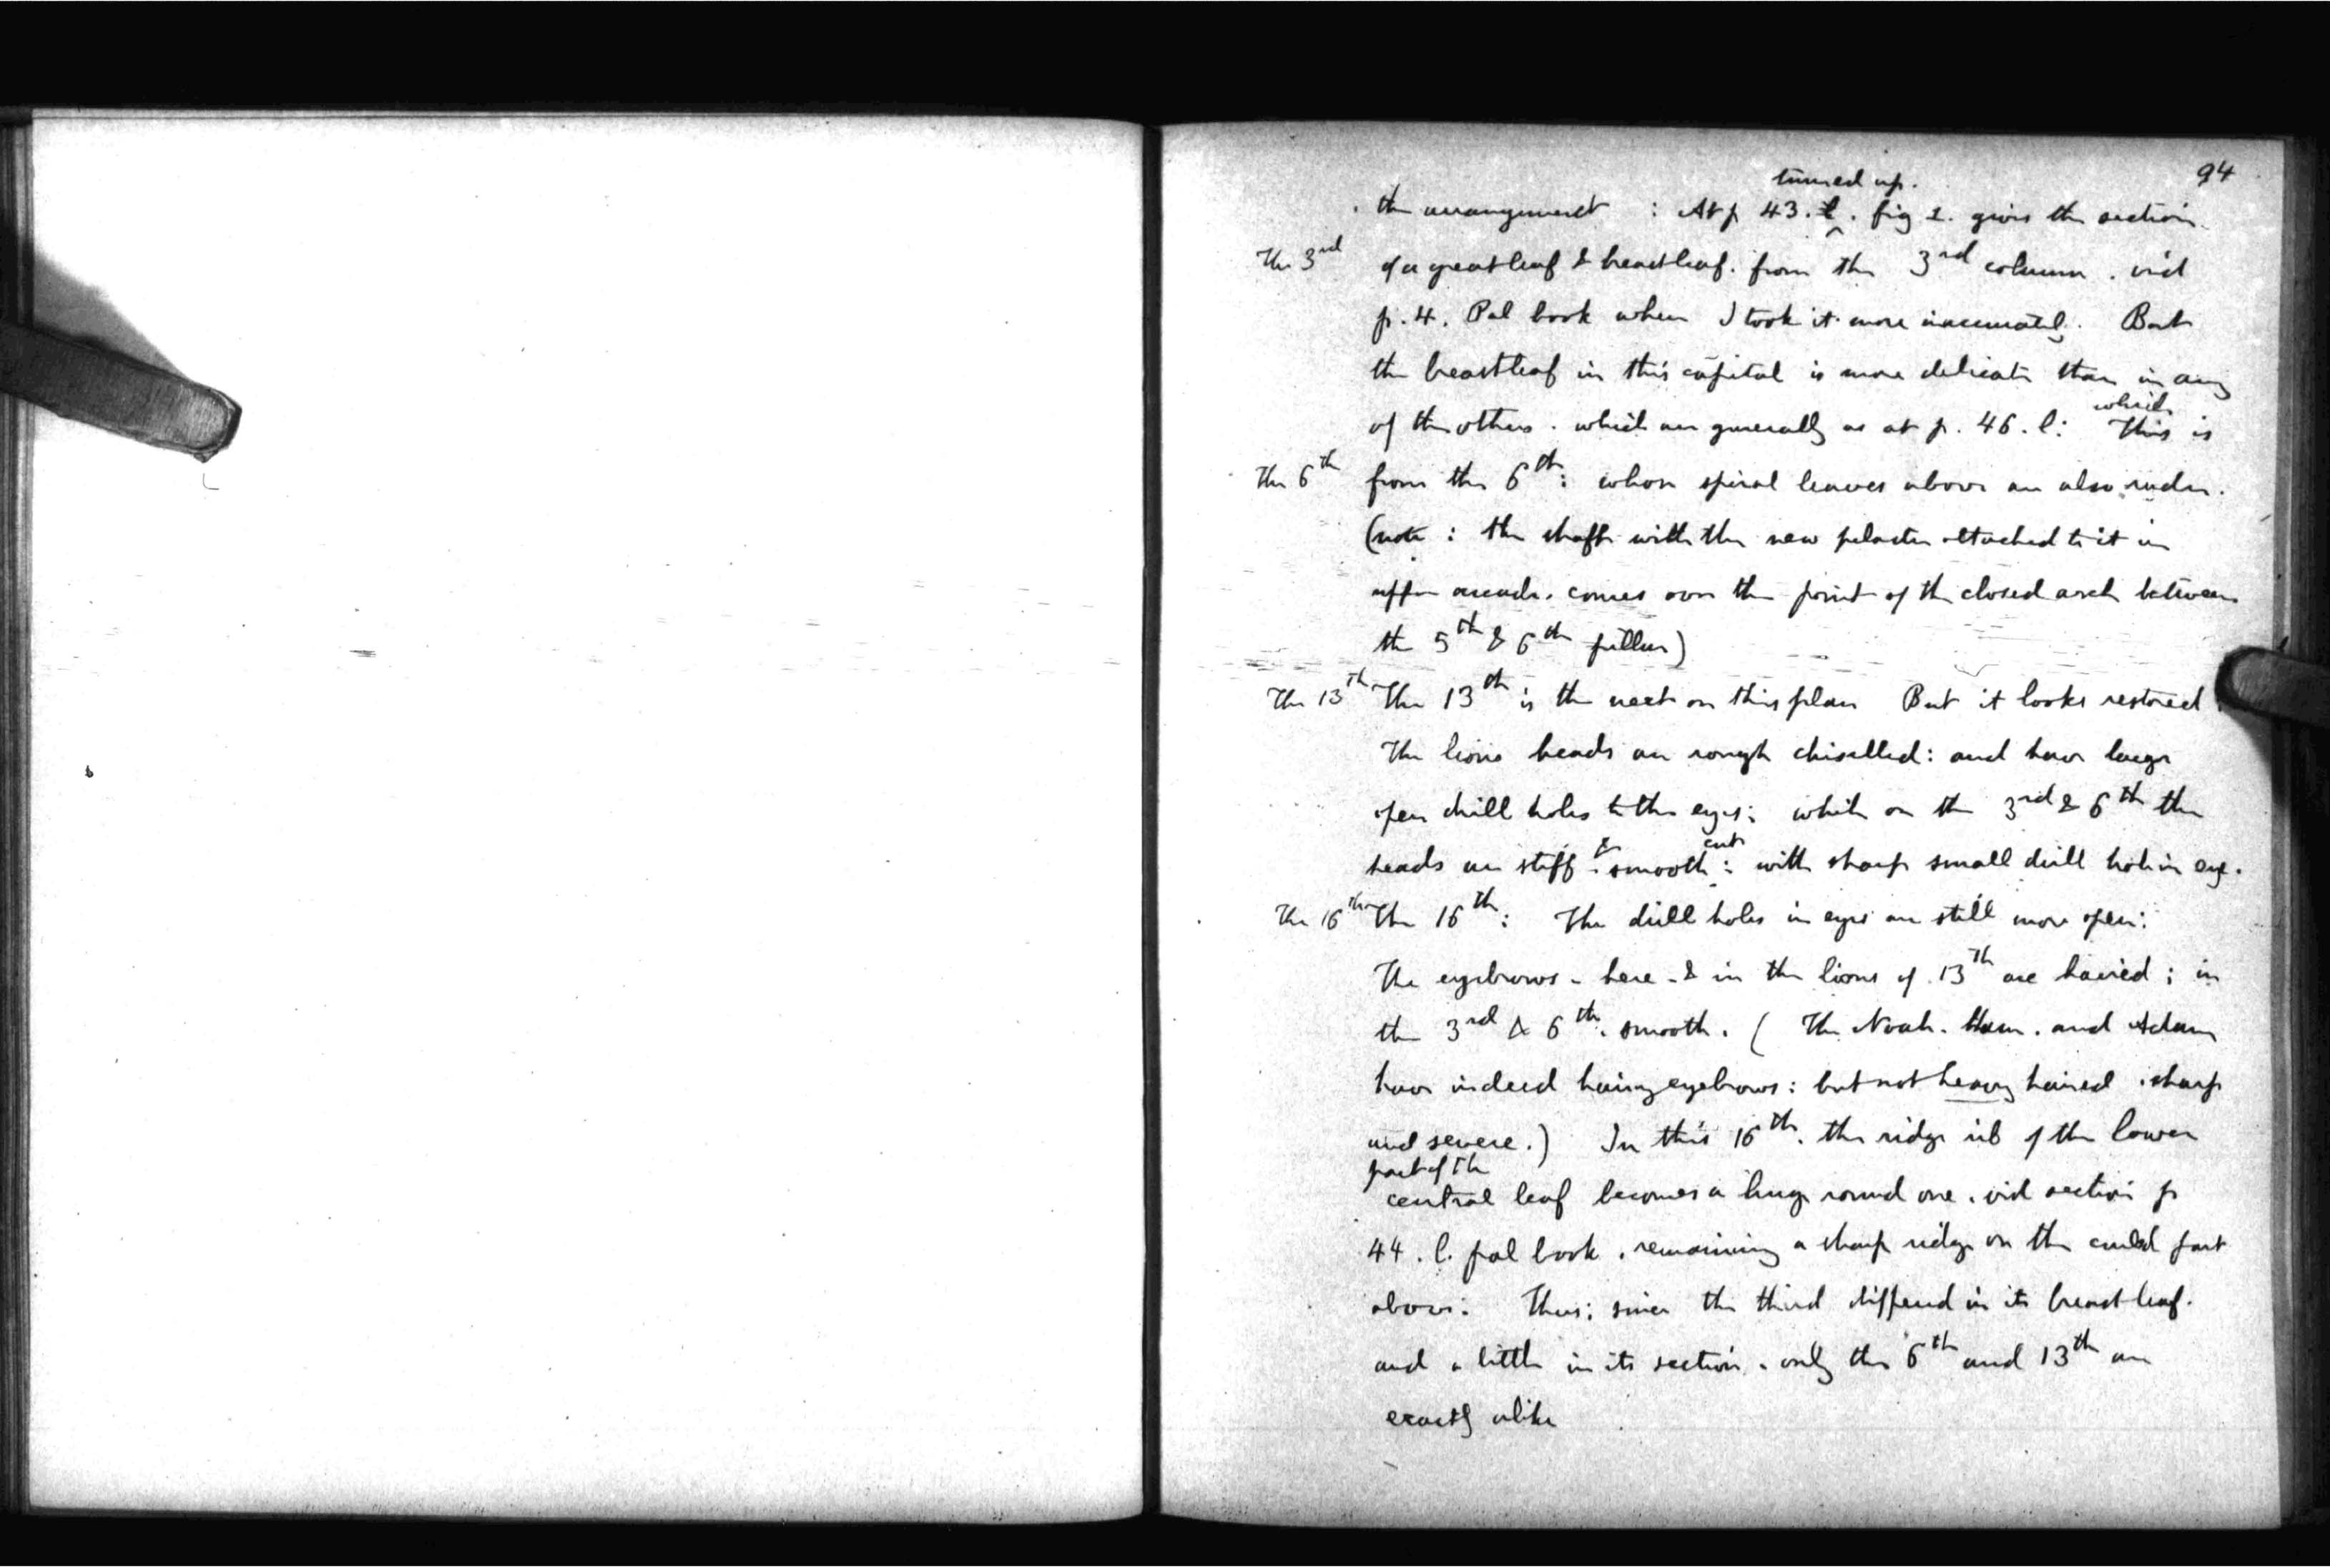 94
turned up.
the arrangement : At p 43. l. fig 2. gives the section
The 3rd of a great leaf & breastleaf. from the 3rd column . vid
p. 4. Pal book where I took it more inaccurately. But
the breastleaf in this capital is more delicate than in any
of the others . which are generally as at p. 46. l: This is
which
The 6th from the 6th: whose spiral leaves above are also ruder.
(note : the shaft with the new pilaster attached to it in
upper arcade. comes over the point of the closed arch between
the 5th & 6th pillar)
The 13th The 13th is the next on this plan But it looks restored.
The lions heads are rough chiselled: and have large
open drill holes to the eyes: while on the 3rd & 6th the
heads are stiff & smooth cut : with sharp small drill hole in eye.
The 16th The 16th: The drill holes in eyes are still more open:
The eyebrows - here - & in the lions of 13th are haired ; in
the 3rd & 6th. smooth. ( The Noah. Ham. and Adam
have indeed hairy eyebrows: but not heavy haired . sharp
and severe.) In this 16th. the ridge rib of the lower
part of the
central leaf becomes a huge round one . vid section p
44 . l. pal book . remaining a sharp ridge on the curled part
above: Thus: since the third differed in its breast leaf.
and a little in its section . only the 6th and 13th are
exactly alike